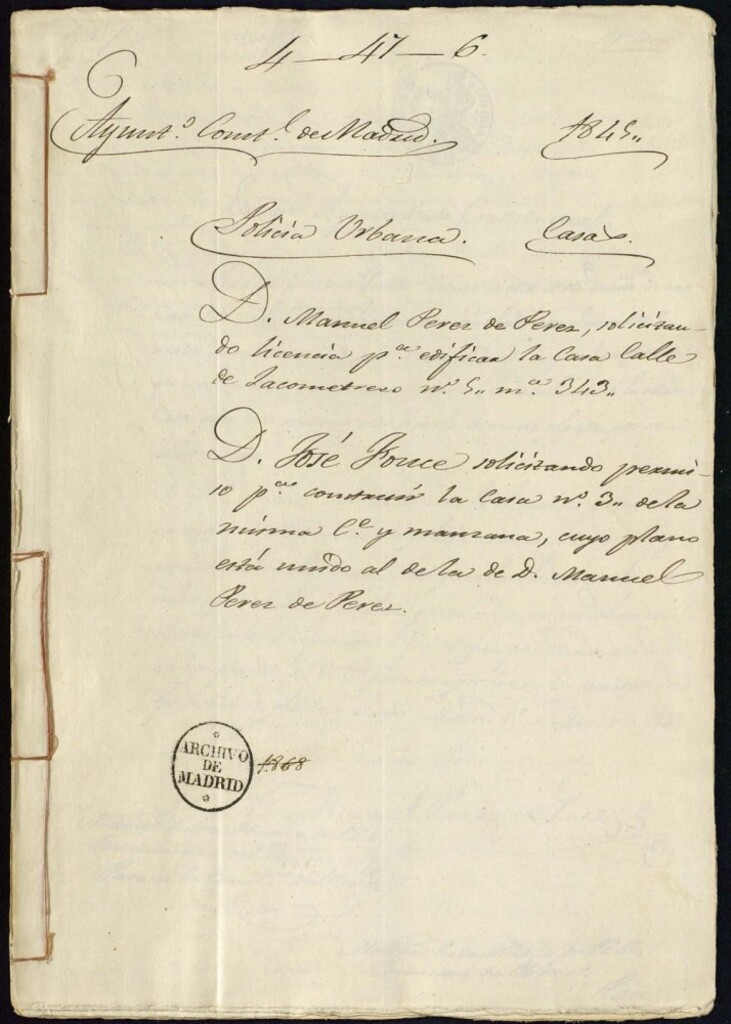 4–47–6
Ayunt.º Const.l de Madrid. 1845,,
Policia Urbana. Casas.
D. Manuel Perez de Perez, solicitan-
do licencia p.ª edificar la Casa Calle
de Jacometrezo n.º 5,, m.ª 343,,
D. José Ponce solicitando permi-
so p.ª construir la Casa n.º 3,, de la
misma C.e y manzana, cuyo plano
está unido al de la de D. Manuel
Perez de Perez.
ARCHIVO
DE
MADRID
1868